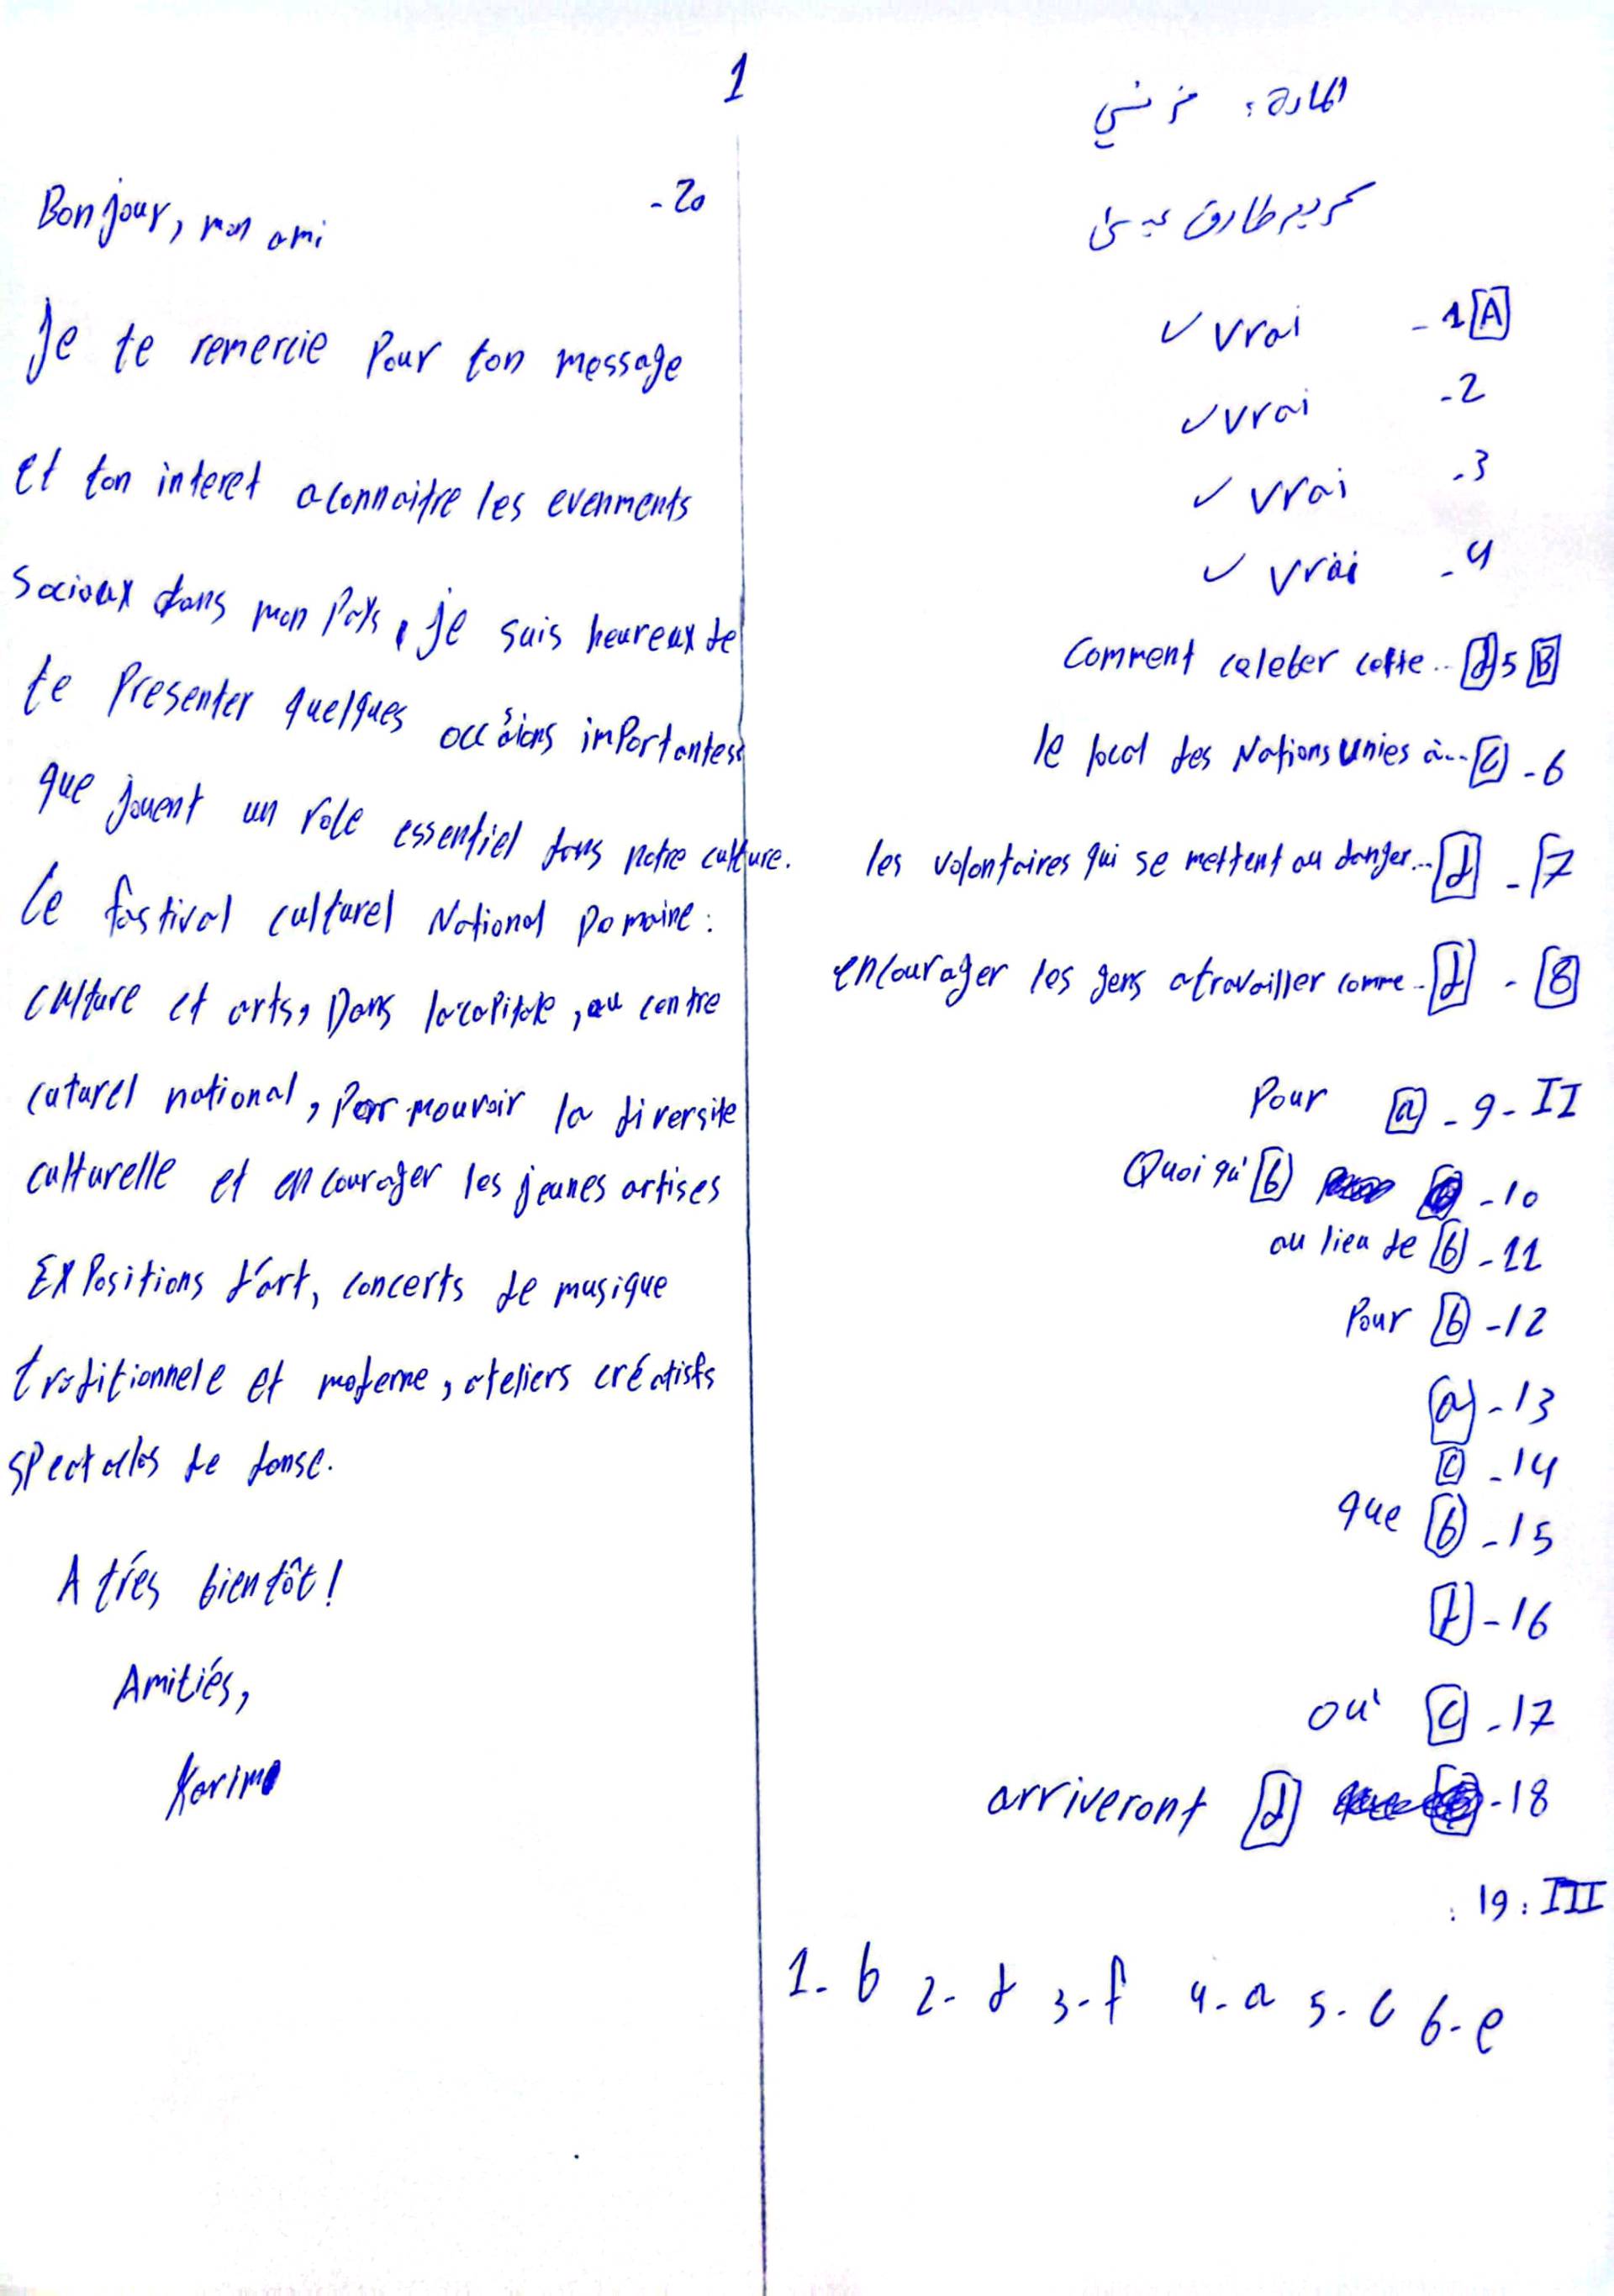 1
المادة: فرنسي
كريم طارق عيسى
✓ vrai - 1 [A]
✓ vrai - 2
✓ vrai - 3
✓ vrai - 4
Comment celeber cette .. [d] 5 [B]
le local des Nations Unies à... [c] - 6
les volontaires qui se mettent au danger... [d] - 7
encourager les gens a travailler comme .. [d] - 8
Pour [a] - 9 - II
Quoi qu' [b] - 10
au lieu de [b] - 11
Pour [b] - 12
[a] - 13
[c] - 14
que [b] - 15
[d] - 16
ou' [c] - 17
arriveront [d] - 18
: 19 : III
1- b 2- d 3- f 4- a 5- c 6- e
- 20
Bonjour, mon ami
Je te remercie Pour ton message
et ton interet a connaitre les evenments
Sociaux dans mon Pays, je suis heureux de
te Presenter quelques occasions importantess
que jouent un role essentiel dans notre culture.
Le fastival culturel National Domaine:
culture et arts, Dans la capitale, au centre
caturel national, Pour mouvoir la diversite
culturelle et en courager les jeunes artises
EXPositions d'art, concerts de musique
traditionnele et moderne, ateliers créatisfs
spectacles de danse.
A trés bientôt!
Amitiés,
Karim